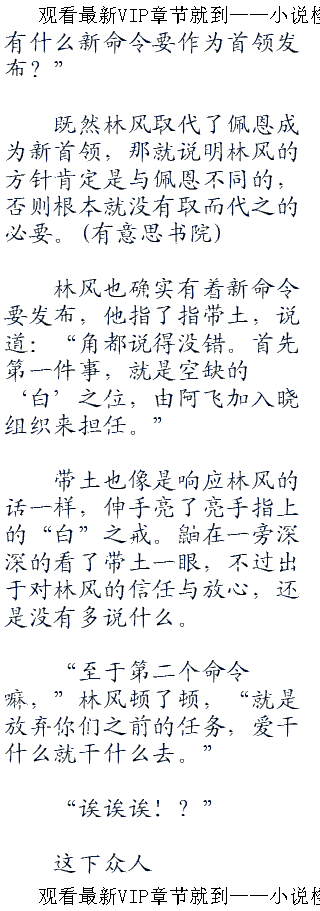 观看最新VIP章节就到——小说检
有什么新命令要作为首领发
布？”
既然林风取代了佩恩成
为新首领，那就说明林风的
方针肯定是与佩恩不同的，
否则根本就没有取而代之的
必要。(有意思书院)
林风也确实有着新命令
要发布，他指了指带土，说
道：“角都说得没错。首先
第一件事，就是空缺的
‘白’之位，由阿飞加入晓
组织来担任。”
带土也像是响应林风的
话一样，伸手亮了亮手指上
的“白”之戒。鼬在一旁深
深的看了带土一眼，不过出
于对林风的信任与放心，还
是没有多说什么。
“至于第二个命令
嘛，”林风顿了顿，“就是
放弃你们之前的任务，爱干
什么就干什么去。”
“诶诶诶！？”
这下众人
观看最新VIP章节就到——小说检